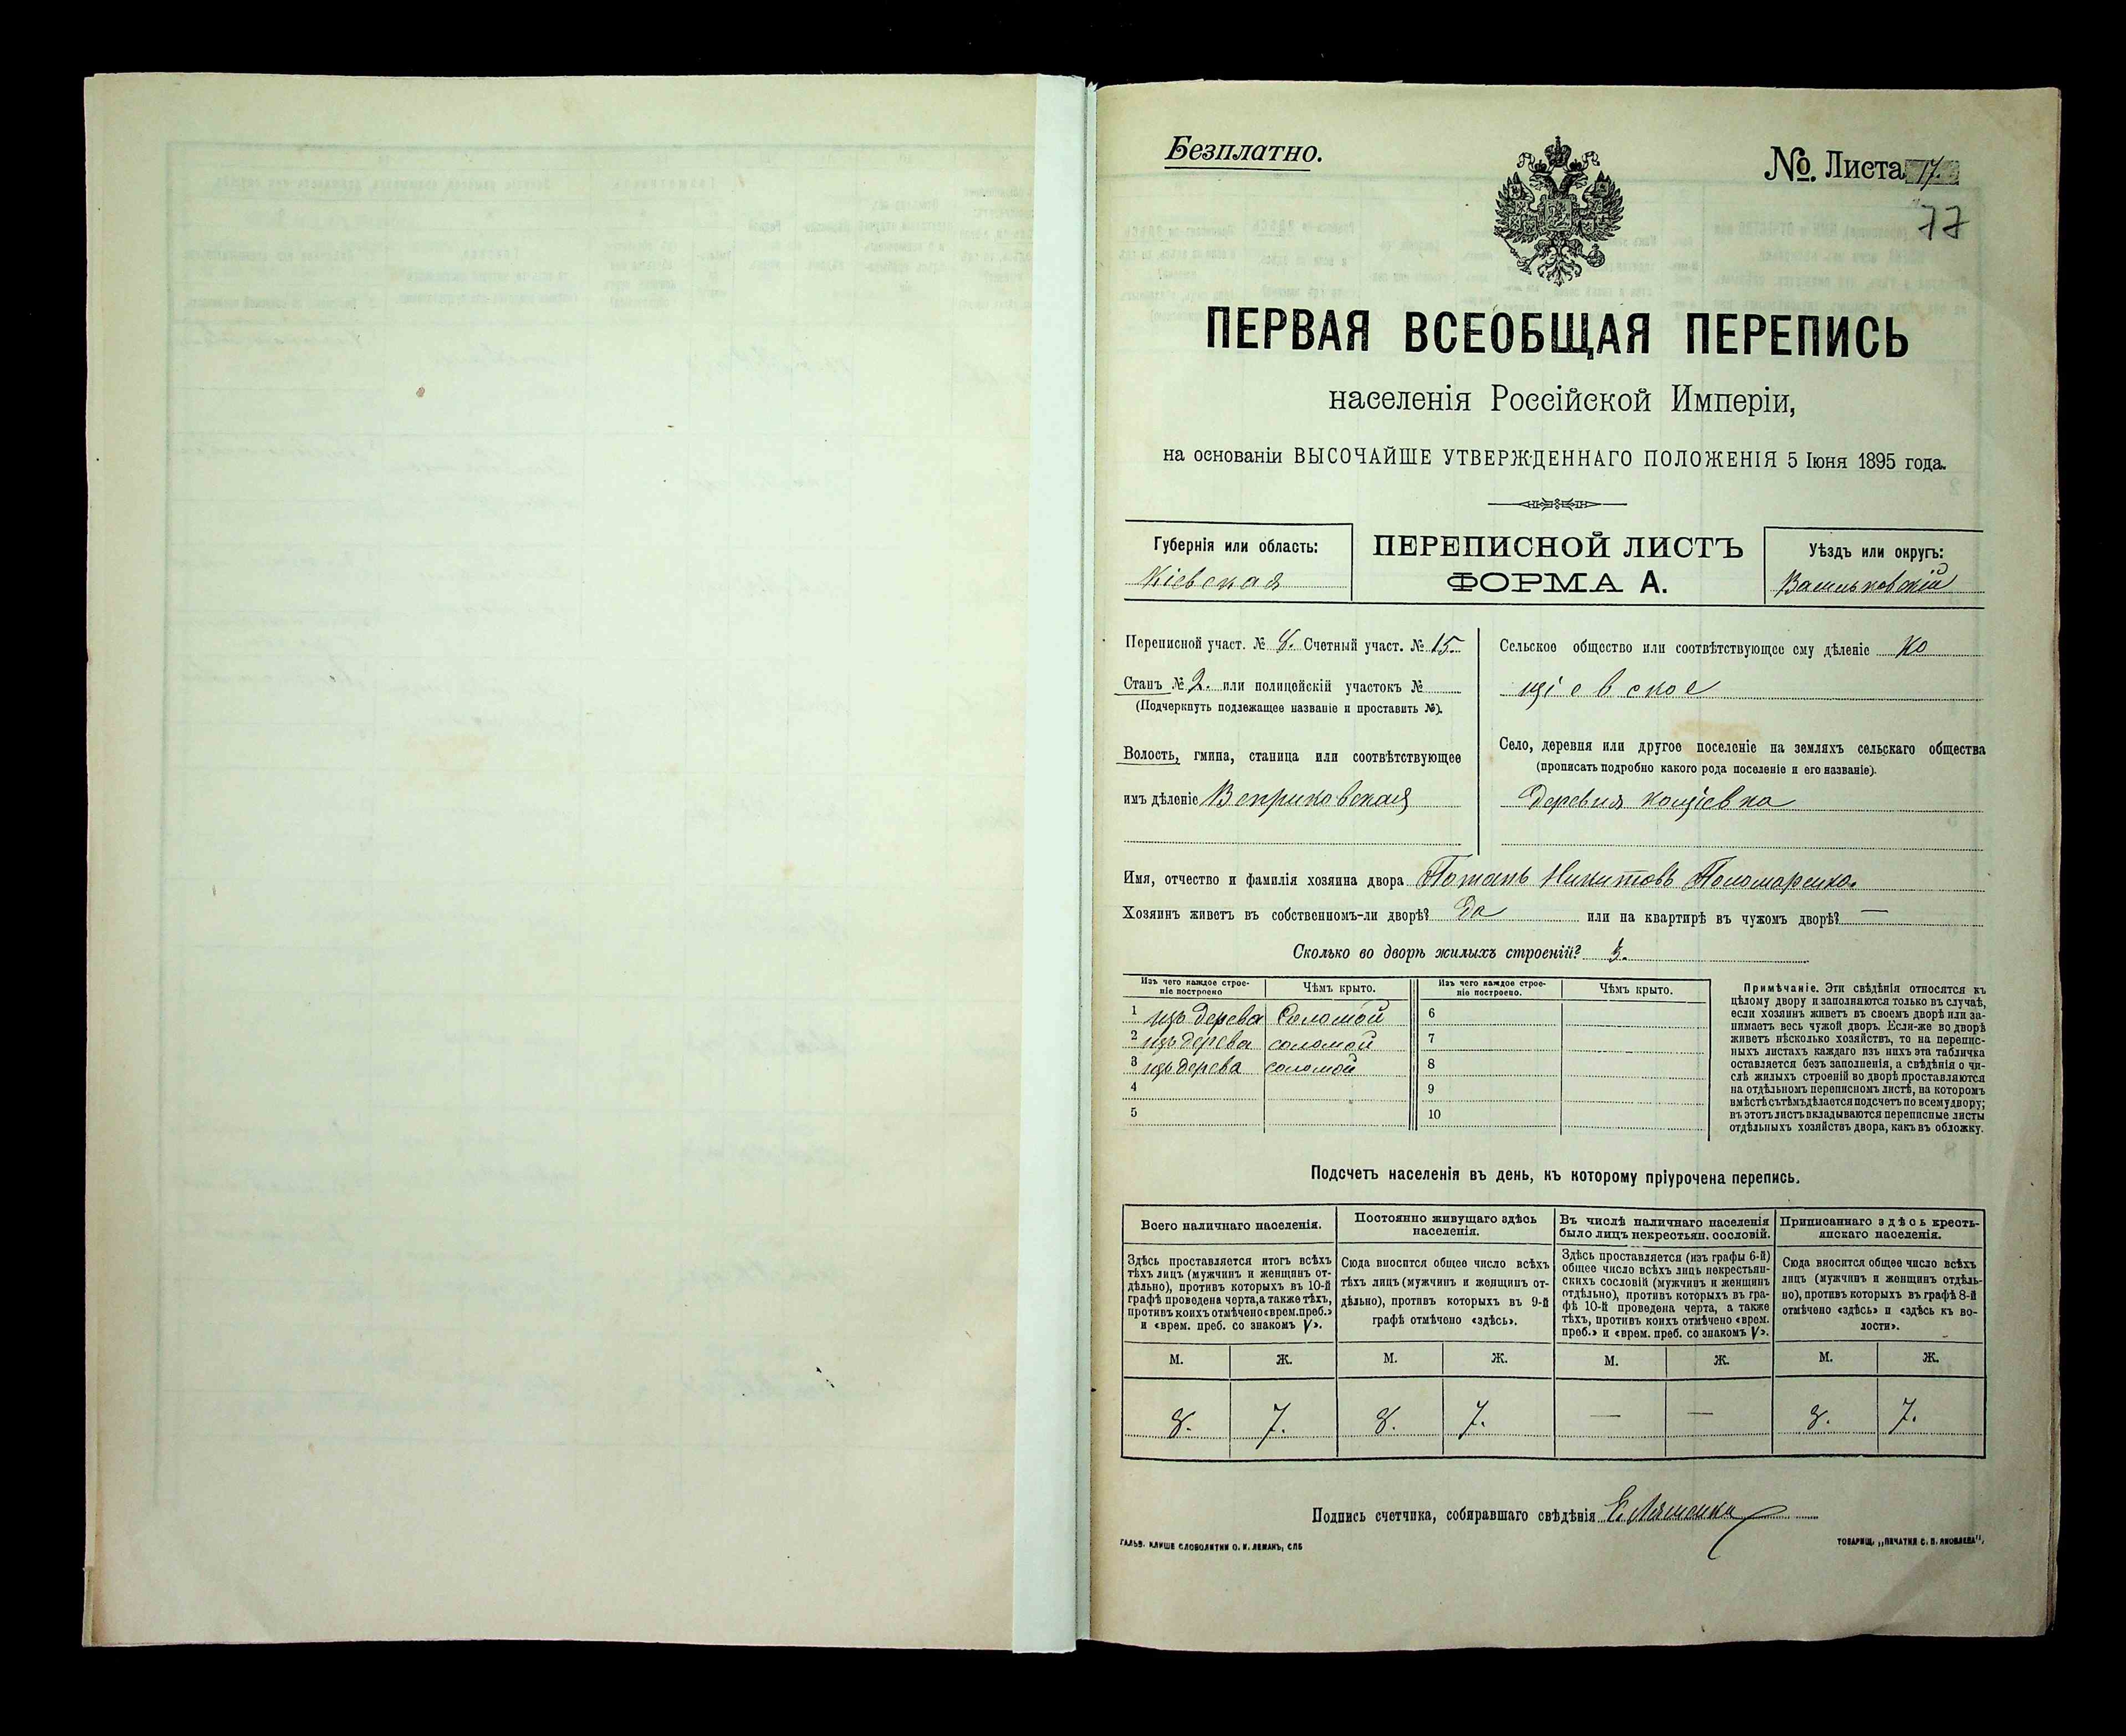 Безплатно.
№. Листа 17.
77
ПЕРВАЯ ВСЕОБЩАЯ ПЕРЕПИСЬ
населенія Россійской Имперіи,
на основаніи ВЫСОЧАЙШЕ УТВЕРЖДЕННАГО ПОЛОЖЕНІЯ 5 Іюня 1895 года.
Губернія или область:
Кіевская
ПЕРЕПИСНОЙ ЛИСТЪ
ФОРМА А.
Уѣздъ или округъ:
Васильковскій
Переписной участ. № 8. Счетный участ. № 15.
Станъ № 2. или полицейскій участокъ №
(Подчеркнуть подлежащее названіе и проставить №).
Волость, гмина, станица или соотвѣтствующее
имъ дѣленіе Веприковская
Сельское общество или соотвѣтствующее ему дѣленіе Ко
щіевское
Село, деревня или другое поселеніе на земляхъ сельскаго общества
(прописать подробно какого рода поселеніе и его названіе).
Деревня Кощіевка
Имя, отчество и фамилія хозяина двора Потапъ Никитовъ Пономаренко.
Хозяинъ живетъ въ собственномъ-ли дворѣ? Да или на квартирѣ въ чужомъ дворѣ? —
Сколько во дворѣ жилыхъ строеній? 3.
Изъ чего каждое строе-
ніе построено
Чѣмъ крыто.
Изъ чего каждое строе-
ніе построено.
Чѣмъ крыто.
1 изъ дерева Соломой 6
2 изъ дерева соломой 7
3 изъ дерева соломой 8
4 9
5 10
Примѣчаніе. Эти свѣдѣнія относятся къ
цѣлому двору и заполняются только въ случаѣ,
если хозяинъ живетъ въ своемъ дворѣ или за-
нимаетъ весь чужой дворъ. Если-же во дворѣ
живетъ нѣсколько хозяйствъ, то на перепис-
ныхъ листахъ каждаго изъ нихъ эта табличка
оставляется безъ заполненія, а свѣдѣнія о чи-
слѣ жилыхъ строеній во дворѣ проставляются
на отдѣльномъ переписномъ листѣ, на которомъ
вмѣстѣ съ тѣмъ дѣлается подсчетъ по всему двору;
въ этотъ листъ вкладываются переписные листы
отдѣльныхъ хозяйствъ двора, какъ въ обложку.
Подсчетъ населенія въ день, къ которому пріурочена перепись.
Всего наличнаго населенія.
Постоянно живущаго здѣсь
населенія.
Въ числѣ наличнаго населенія
было лицъ некрестьян. сословій.
Приписаннаго здѣсь кресть-
янскаго населенія.
Здѣсь проставляется итогъ всѣхъ
тѣхъ лицъ (мужчинъ и женщинъ от-
дѣльно), противъ которыхъ въ 10-й
графѣ проведена черта, а также тѣхъ,
противъ коихъ отмѣчено «врем. преб.»
и «врем. преб. со знакомъ V».
Сюда вносится общее число всѣхъ
тѣхъ лицъ (мужчинъ и женщинъ от-
дѣльно), противъ которыхъ въ 9-й
графѣ отмѣчено «здѣсь».
Здѣсь проставляется (изъ графы 6-й)
общее число всѣхъ лицъ некрестьян-
скихъ сословій (мужчинъ и женщинъ
отдѣльно), противъ которыхъ въ гра-
фѣ 10-й проведена черта, а также
тѣхъ, противъ коихъ отмѣчено «врем.
преб.» и «врем. преб. со знакомъ V».
Сюда вносится общее число всѣхъ
лицъ (мужчинъ и женщинъ отдѣль-
но), противъ которыхъ въ графѣ 8-й
отмѣчено «здѣсь» и «здѣсь къ во-
лости».
М. Ж. М. Ж. М. Ж. М. Ж.
8. 7. 8. 7. — — 8. 7.
Подпись счетчика, собиравшаго свѣдѣнія Е. Ляшенко
ГАЛЬВ. КЛИШЕ СЛОВОЛИТНИ О. И. ЛЕМАНЪ, СПБ
ТОВАРИЩ. „ПЕЧАТНЯ С. П. ЯКОВЛЕВА“.